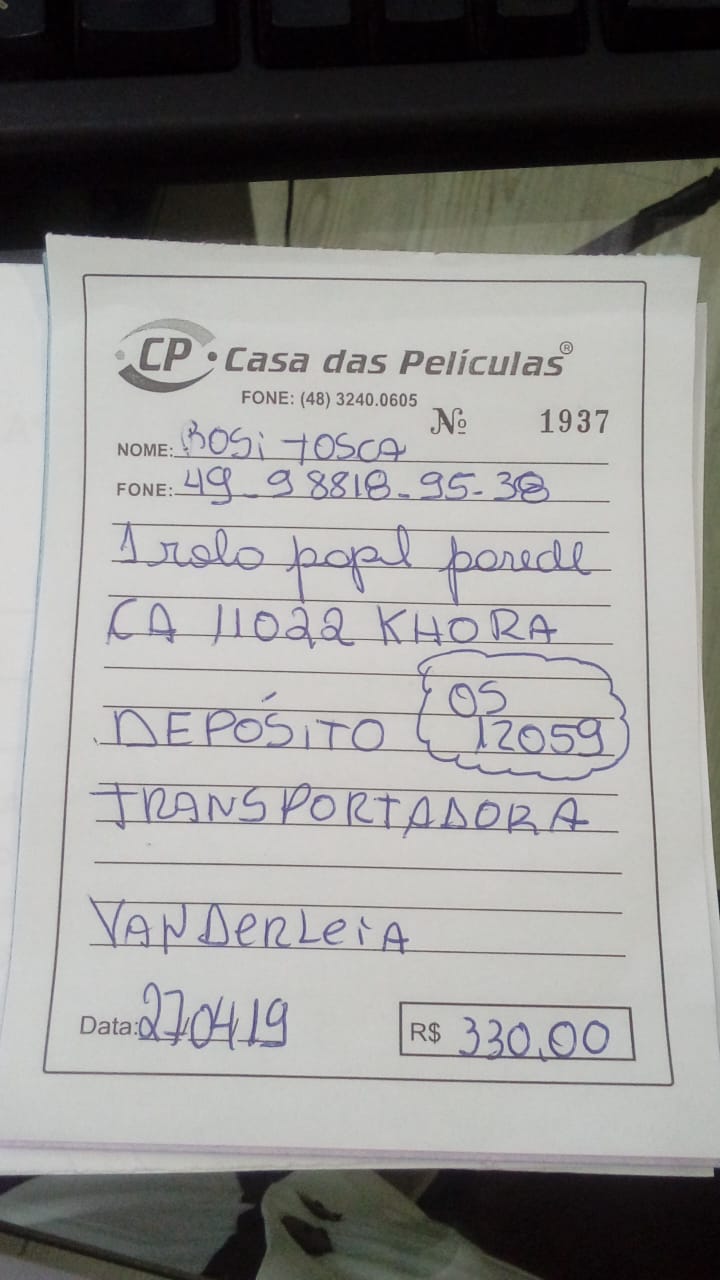 CP · Casa das Películas®
FONE: (48) 3240.0605
Nº 1937
NOME: ROSI TOSCA
FONE: 49-98818-95-38
1 rolo papl parede
CA 11022 KHORA
OS
DEPÓSITO 12059
TRANSPORTADORA
VANDERLEIA
Data: 270419 R$ 330,00